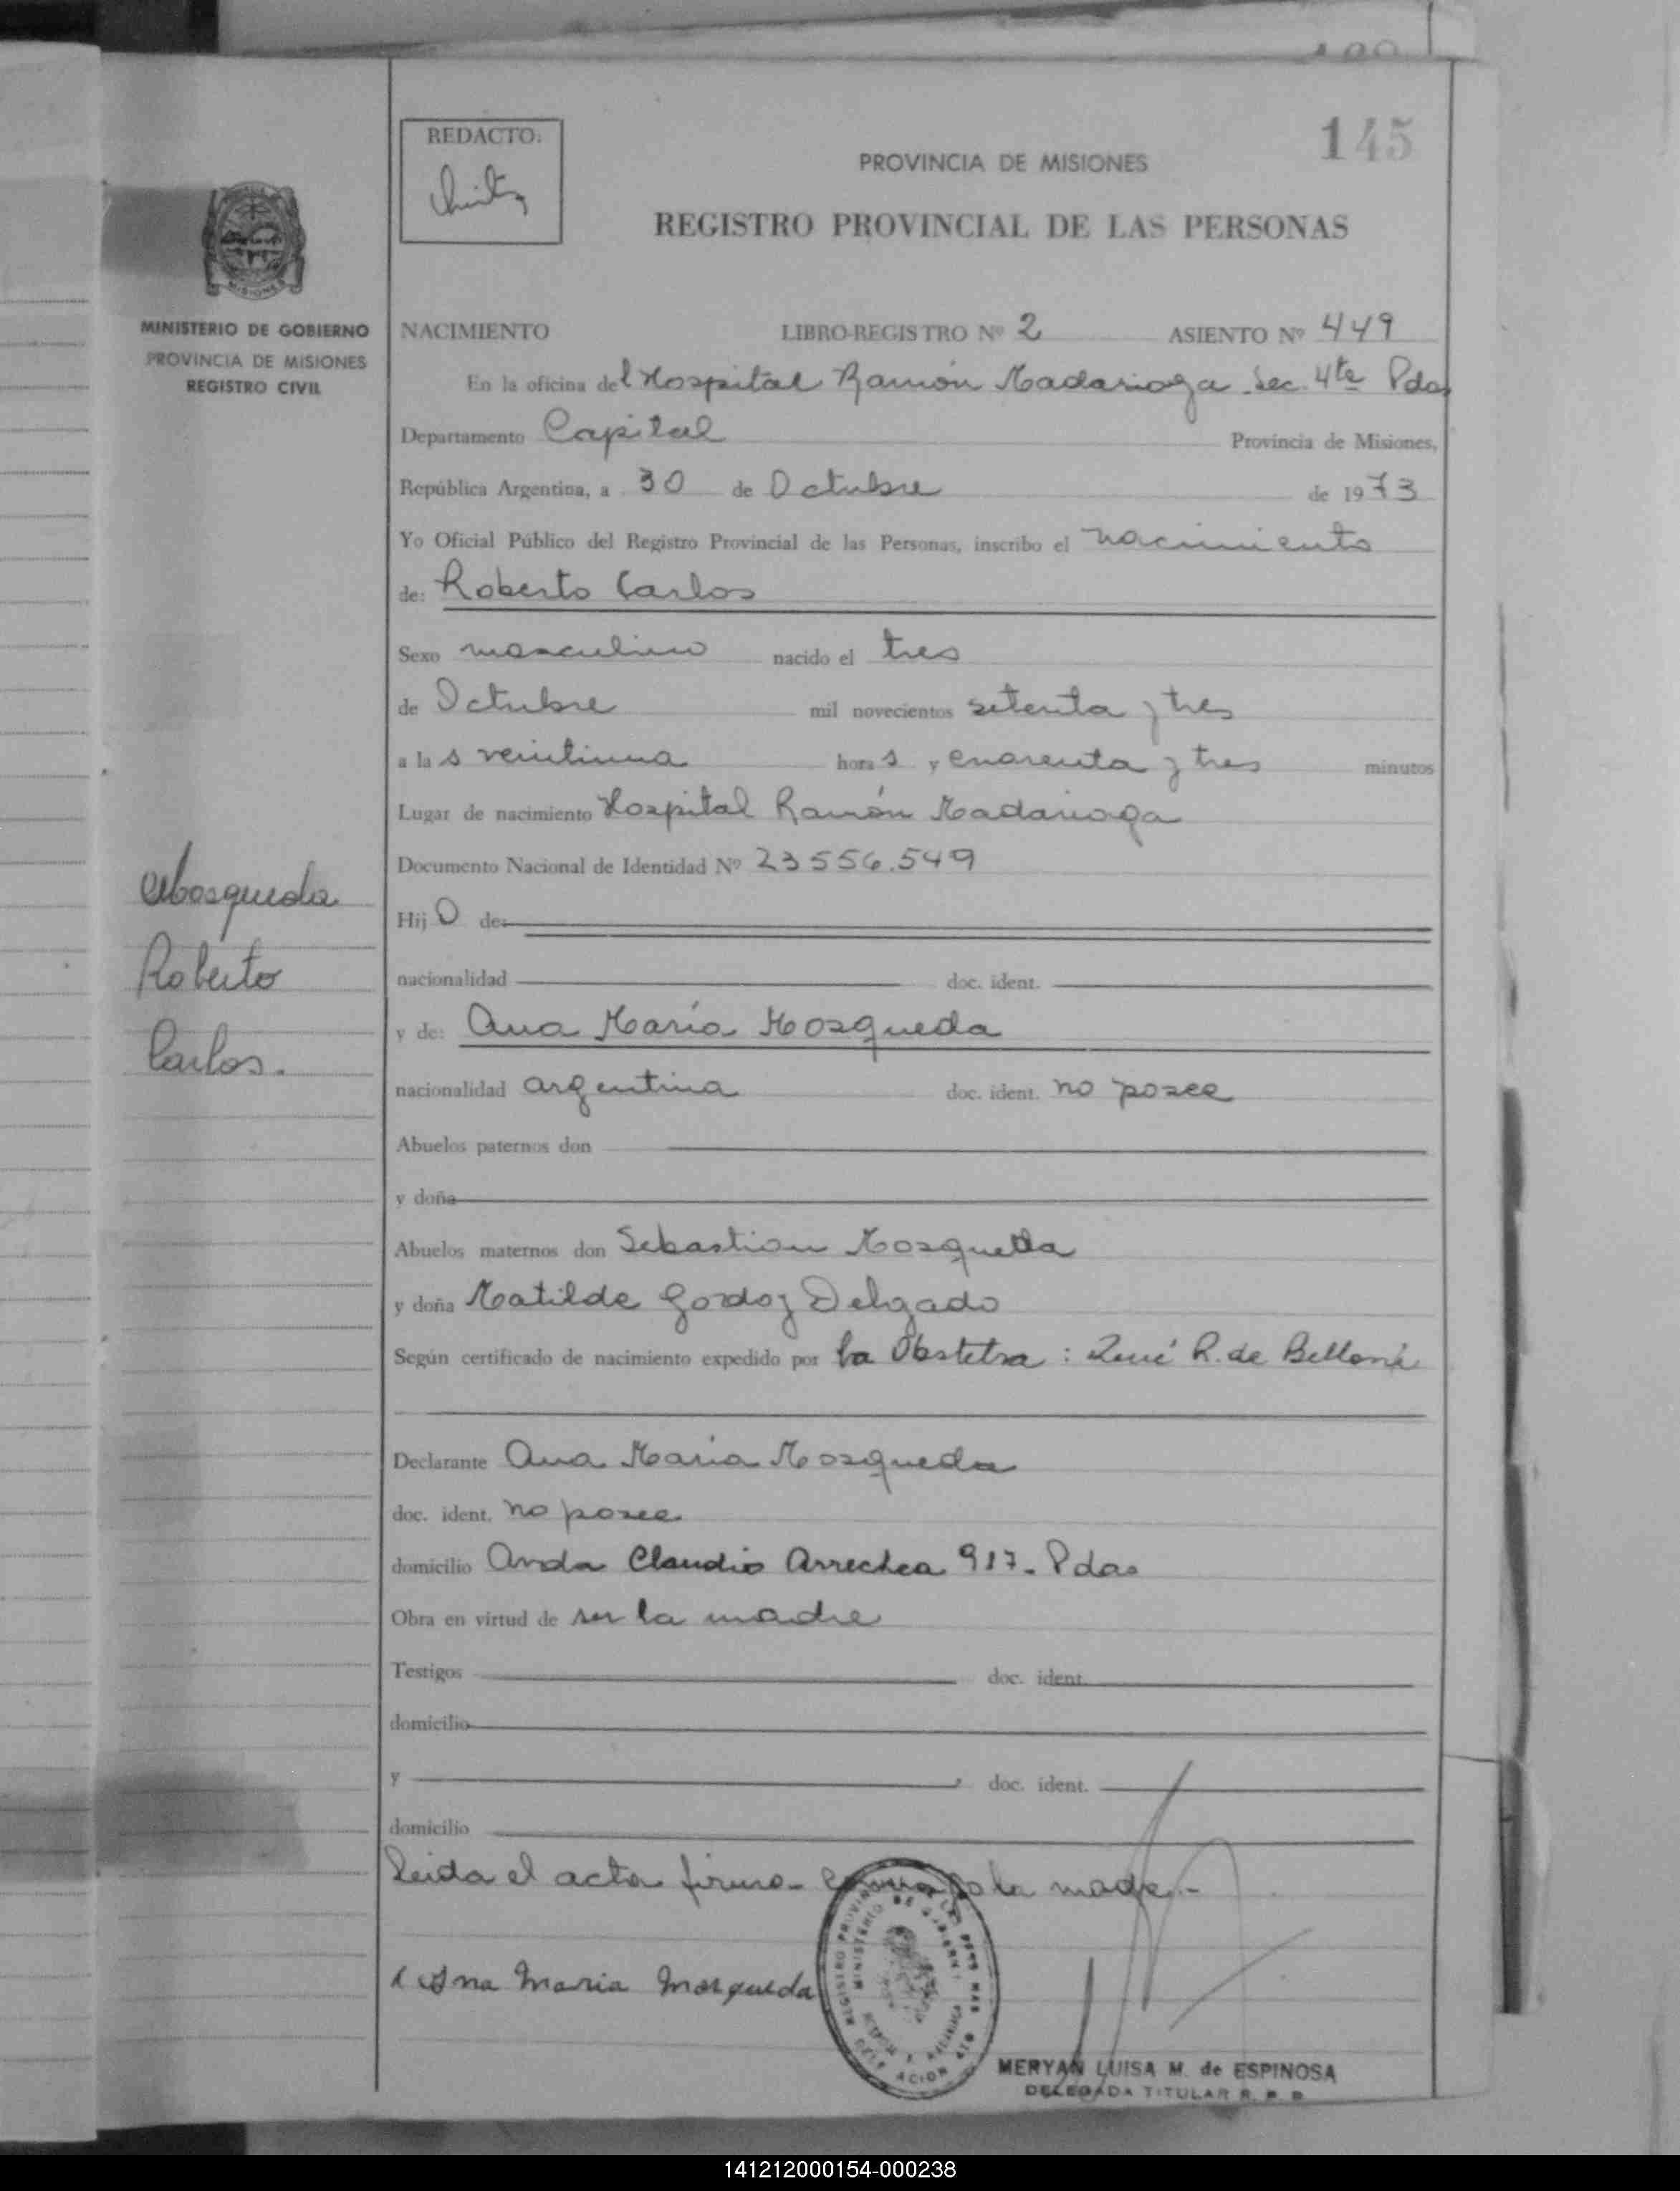 145
REDACTO:
PROVINCIA DE MISIONES
REGISTRO PROVINCIAL DE LAS PERSONAS
MINISTERIO DE GOBIERNO
PROVINCIA DE MISIONES
REGISTRO CIVIL
NACIMIENTO LIBRO-REGISTRO Nº 2 ASIENTO Nº 449
En la oficina del Hospital Ramón Madariaga Sec. 4ta Pdas
Departamento Capital Provincia de Misiones,
República Argentina, a 30 de Octubre de 1973
Yo Oficial Público del Registro Provincial de las Personas, inscribo el nacimiento
de: Roberto Carlos
Sexo masculino nacido el tres
de Octubre mil novecientos setenta y tres
a las veintiuna horas y cuarenta y tres minutos
Lugar de nacimiento Hospital Ramón Madariaga
Documento Nacional de Identidad Nº 23556.549
Hijo de:
nacionalidad doc. ident.
y de: Ana María Mosqueda
nacionalidad argentina doc. ident. no posee
Abuelos paternos don
y doña
Abuelos maternos don Sebastian Mosqueda
y doña Matilde Godoy Delgado
Según certificado de nacimiento expedido por la Obstetra: René R. de Belloni
Declarante Ana María Mosqueda
doc. ident. no posee
domicilio Avda Claudio Arrechea 917- Pdas
Obra en virtud de ser la madre
Testigos doc. ident.
domicilio
y doc. ident.
domicilio
Leida el acta firma la madre.-
Ana Maria Mosqueda
MERYAN LUISA M. de ESPINOSA
DELEGADA TITULAR R. P. P.
Mosqueda
Roberto
Carlos.
141212000154-000238